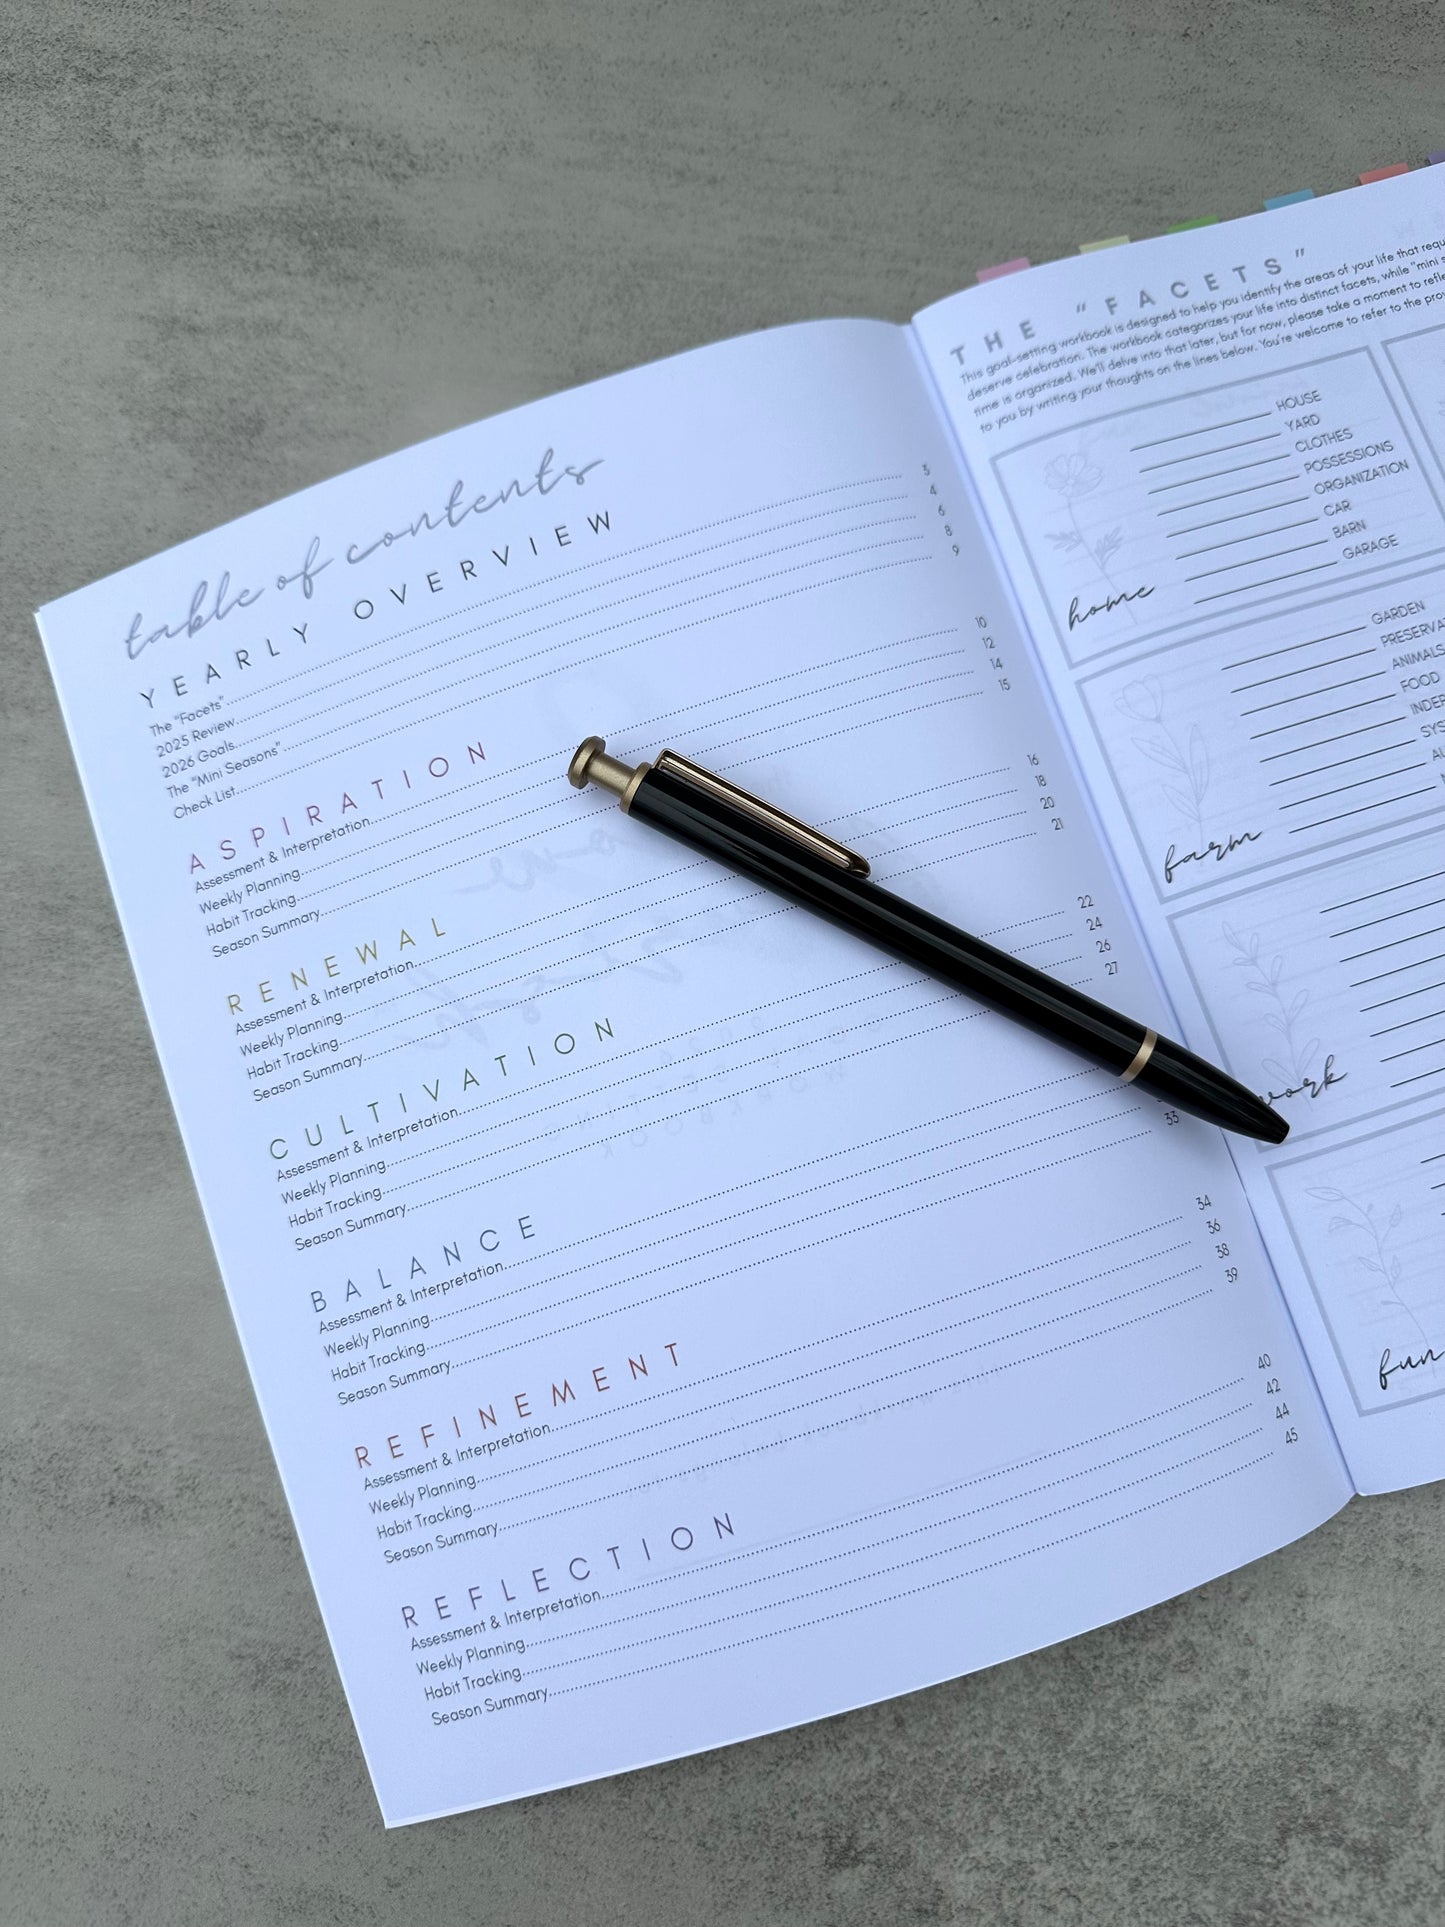 table of contents
YEARLY OVERVIEW
The "Facets" 3
2025 Review 4
2026 Goals 6
The "Mini Seasons" 8
Check List 9
ASPIRATION
Assessment & Interpretation 10
Weekly Planning 12
Habit Tracking 14
Season Summary 15
RENEWAL
Assessment & Interpretation 16
Weekly Planning 18
Habit Tracking 20
Season Summary 21
CULTIVATION
Assessment & Interpretation 22
Weekly Planning 24
Habit Tracking 26
Season Summary 27
BALANCE
Assessment & Interpretation
Weekly Planning
Habit Tracking
Season Summary 33
REFINEMENT
Assessment & Interpretation 34
Weekly Planning 36
Habit Tracking 38
Season Summary 39
REFLECTION
Assessment & Interpretation 40
Weekly Planning 42
Habit Tracking 44
Season Summary 45
THE "FACETS"
This goal-setting workbook is designed to help you identify the areas of your life that
deserve celebration. The workbook categorizes your life into distinct facets, while "mini
time is organized. We'll delve into that later, but for now, please take a moment to
to you by writing your thoughts on the lines below. You're welcome to refer to the
HOUSE
YARD
CLOTHES
POSSESSIONS
ORGANIZATION
CAR
BARN
GARAGE
home
GARDEN
ANIMALS
FOOD
farm
work
fun